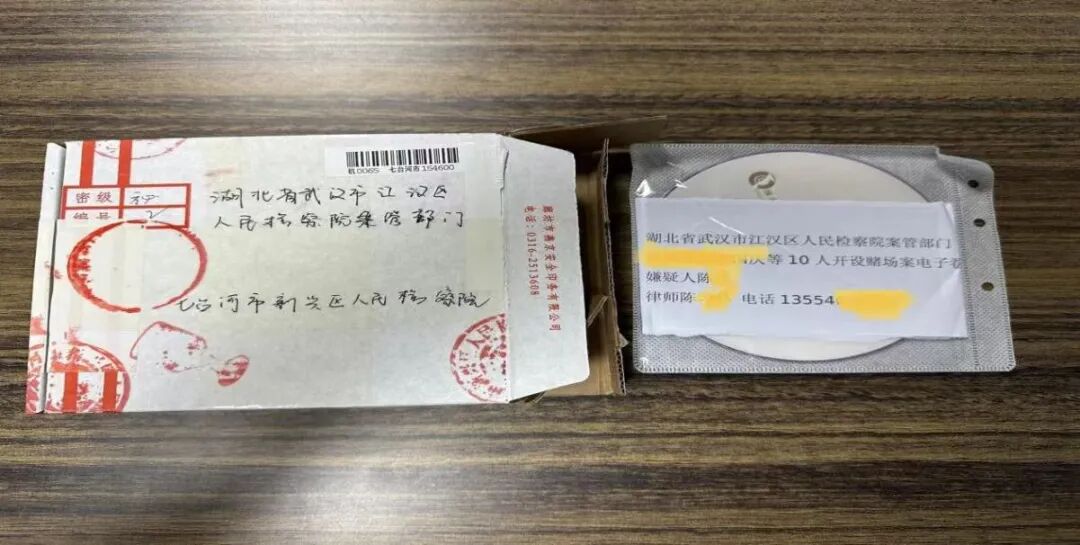 机0065 七台河市154600
密级
编号 2
湖北省武汉市江汉区
人民检察院案管部门
七台河市新兴区人民检察院
廊坊市燕京安全印务有限公司
电话：0316-2513608
湖北省武汉市江汉区人民检察院案管部门
等10人开设赌场案电子卷
嫌疑人陈
律师陈 电话 13554